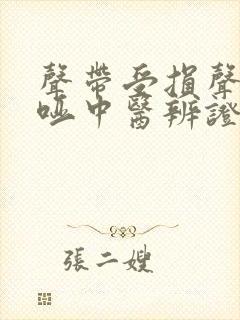 聲帶受損聲
啞中醫辨證
張二嫂